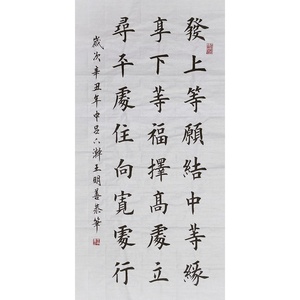 發上等願結中等緣
享下等福擇高處立
尋平處住向寬處行
歲次辛丑年中呂六游王明善恭筆